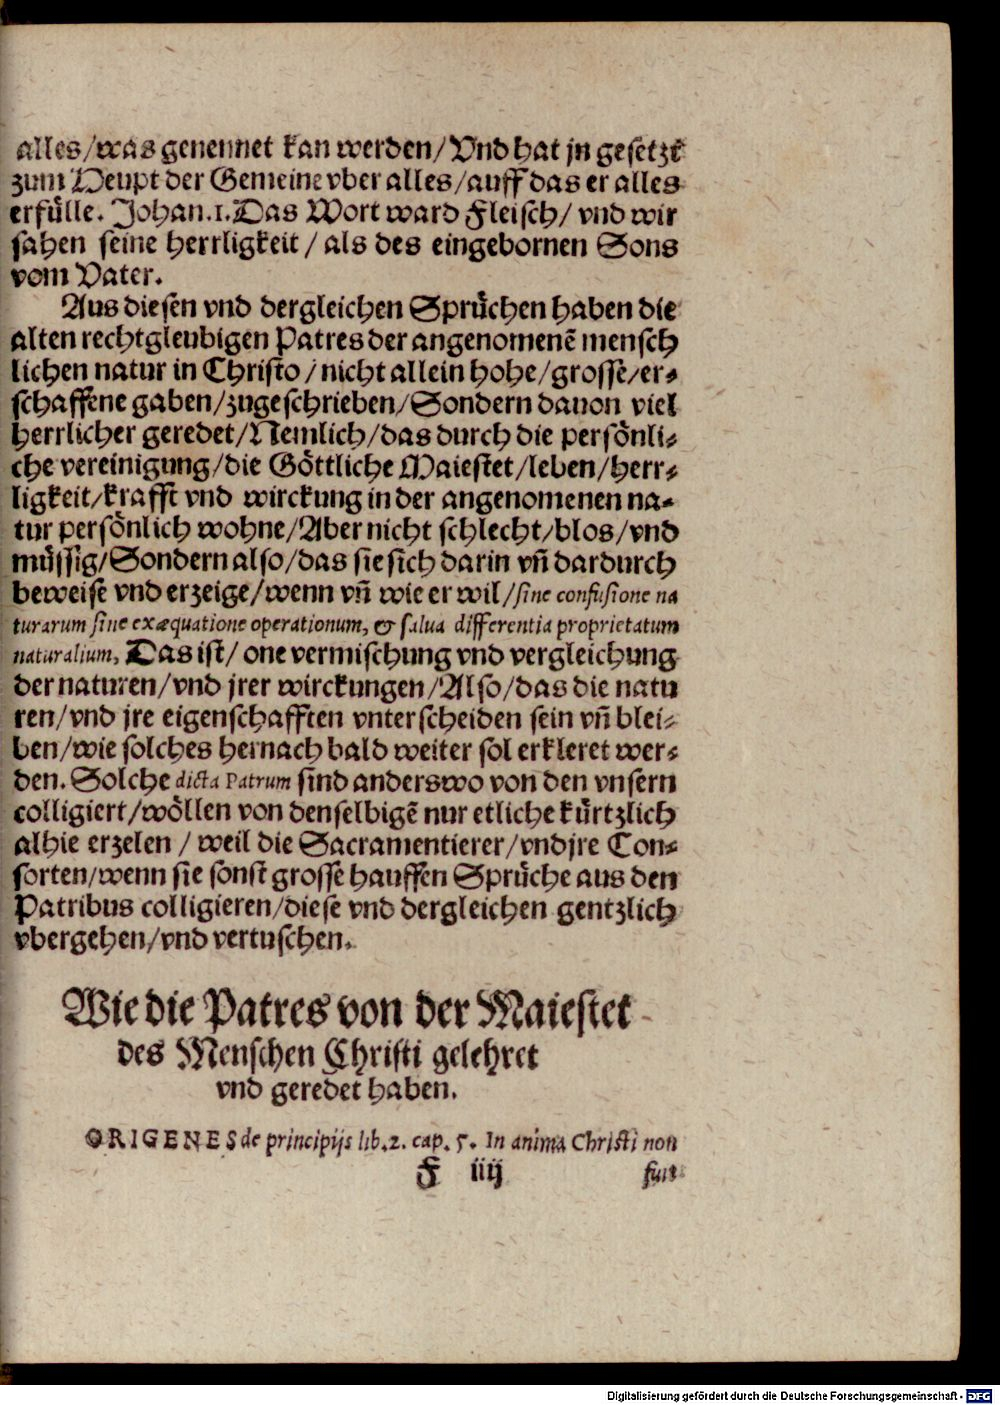 alles/was genennet kan werden/Vnd hat jn gesetzt
zum Heupt der Gemeine vber alles/auff das er alles
erfülle. Johan.1. Das Wort ward Fleisch/ vnd wir
sahen seine herrligkeit / als des eingebornen Sons
vom Vater.
Aus diesen vnd dergleichen Sprüchen haben die
alten rechtgleubigen Patres der angenomenē mensch
lichen natur in Christo / nicht allein hohe/grosse/er-
schaffene gaben/zugeschrieben/Sondern dauon viel
herrlicher geredet/Nemlich/das durch die persönli-
che vereinigung/die Göttliche Maiestet/leben/herr-
ligkeit/krafft vnd wirckung in der angenomenen na-
tur persönlich wohne/Aber nicht schlecht/blos/vnd
müssig/Sondern also/das sie sich darin vn̄ dardurch
beweise vnd erzeige/wenn vn̄ wie er wil/sine confusione na
turarum sine exæquatione operationum, & salua differentia proprietatum
naturalium, Das ist/ one vermischung vnd vergleichung
der naturen/vnd jrer wirckungen/Also/das die natu
ren/vnd jre eigenschafften vnterscheiden sein vn̄ blei-
ben/wie solches hernach bald weiter sol erkleret wer-
den. Solche dicta Patrum sind anderswo von den vnsern
colligiert/wöllen von denselbigē nur etliche kürtzlich
alhie erzelen / weil die Sacramentierer/vnd jre Con-
sorten/wenn sie sonst grosse hauffen Sprüche aus den
Patribus colligieren/diese vnd dergleichen gentzlich
vbergehen/vnd vertuschen.
Wie die Patres von der Maiestet
des Menschen Christi gelehret
vnd geredet haben.
ORIGENES de principijs lib.2. cap. 5. In anima Christi non
F iiij
fuit
Digitalisierung gefördert durch die Deutsche Forschungsgemeinschaft - DFG